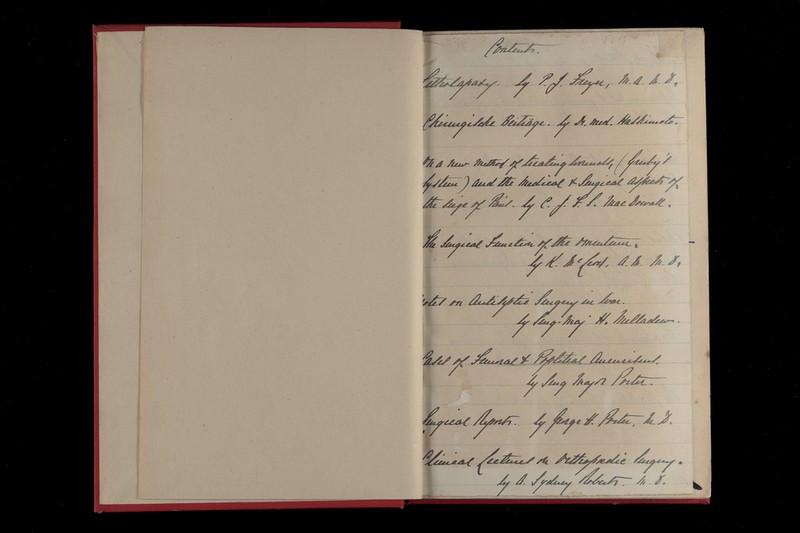 Contents.
Litholapaxy. by P. J. Freyer, M.A. M.D.
Chirurgische Beiträge. by Dr. med. Hashimoto.
On a new method of treating wounds, (Gruby's
System) and the Medical & Surgical Aspects of
the siege of Paris. by C. J. F. S. MacDowall.
The Surgical Function of the Omentum.
by K. McLeod. A.M. M.D.
Notes on Antiseptic Surgery in War.
by Surg. Maj H.
Cases of Femoral & Popliteal Aneurisms.
by Surg Major Porter.
Surgical Reports. by George H. Porter, M.D.
Clinical Lectures on Orthopaedic Surgery.
by A. Sydney Roberts. M.D.